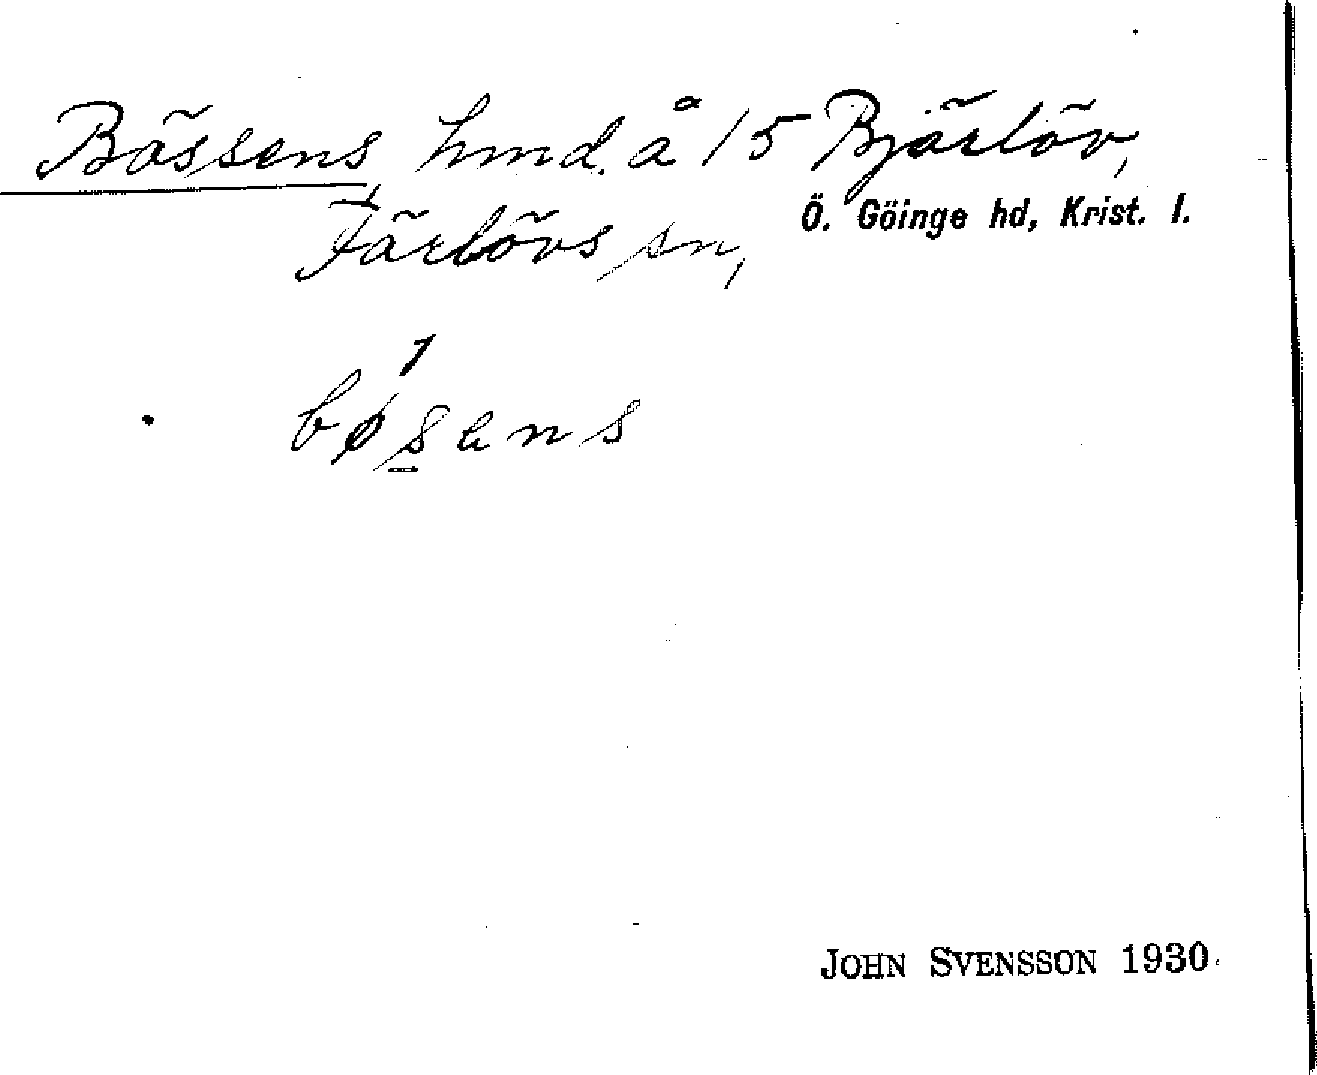 Bössens, hmd. å 15 Bjärlöv,
Färlövs sn, Ö. Göinge hd, Krist. l.
bøsens
JOHN SVENSSON 1930.